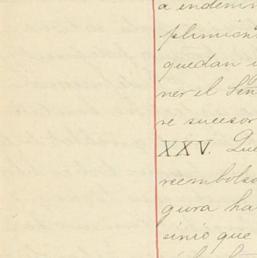 a indemni
plimient
quedan
ner el Señ
re sucesor
XXV. Que
reembolso
gura ha
sinio que